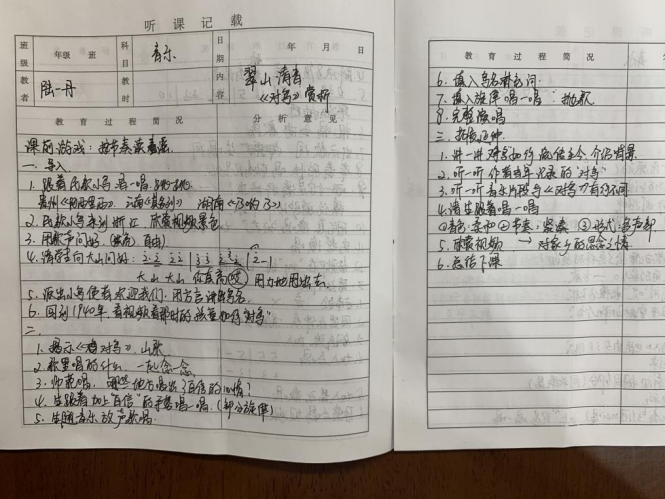 听课记载
班级 年级 班 科目 音乐 日期 年 月 日
教者 陆一丹 教时 内容 翠山清音
《对鸟》赏析
教育过程简况 分析意见
课前游戏：按节奏读童谣
一、导入
1. 跟着民歌小鸟看一唱
贵州《 》 云南《 》 湖南《 》
2. 民歌小鸟来到浙江 欣赏视频景色
3. 用歌声问好 (独有) 自由)
4. 请学生向大山问好: 2· 2 2 2 | 3 2 3 2 | 2 - 1
大山 大山 你真高哎 用力地甩出去
5. 派出小鸟使者欢迎我们 用方言讲鸟名
6. 回到1940年, 看视频看那时的孩童如何"对鸟"
二、
1. 揭示《对鸟》, 山歌
2. 歌里唱的什么 一起念一念
3. 师范唱, 哪些地方唱出了自信的心情?
4. 生跟着加上"自信"的手势唱一唱. (部分旋律)
5. 生跟音乐放声歌唱.
教育过程简况
6. 填入鸟名对问
7. 填入旋律唱一唱: 抛歌
8. 完整演唱
三、拓展延伸
1. 讲一讲对鸟如何流传至今, 介绍背景
2. 听一听作者当年记录的"对鸟"
3. 听一听音乐片段与《对鸟》有何不同
4. 请生跟着唱一唱
①音色: 柔和 ②节奏: 紧凑 ③形式: 多声部
5. 欣赏视频 → 对家乡的思念之情
6. 总结下课